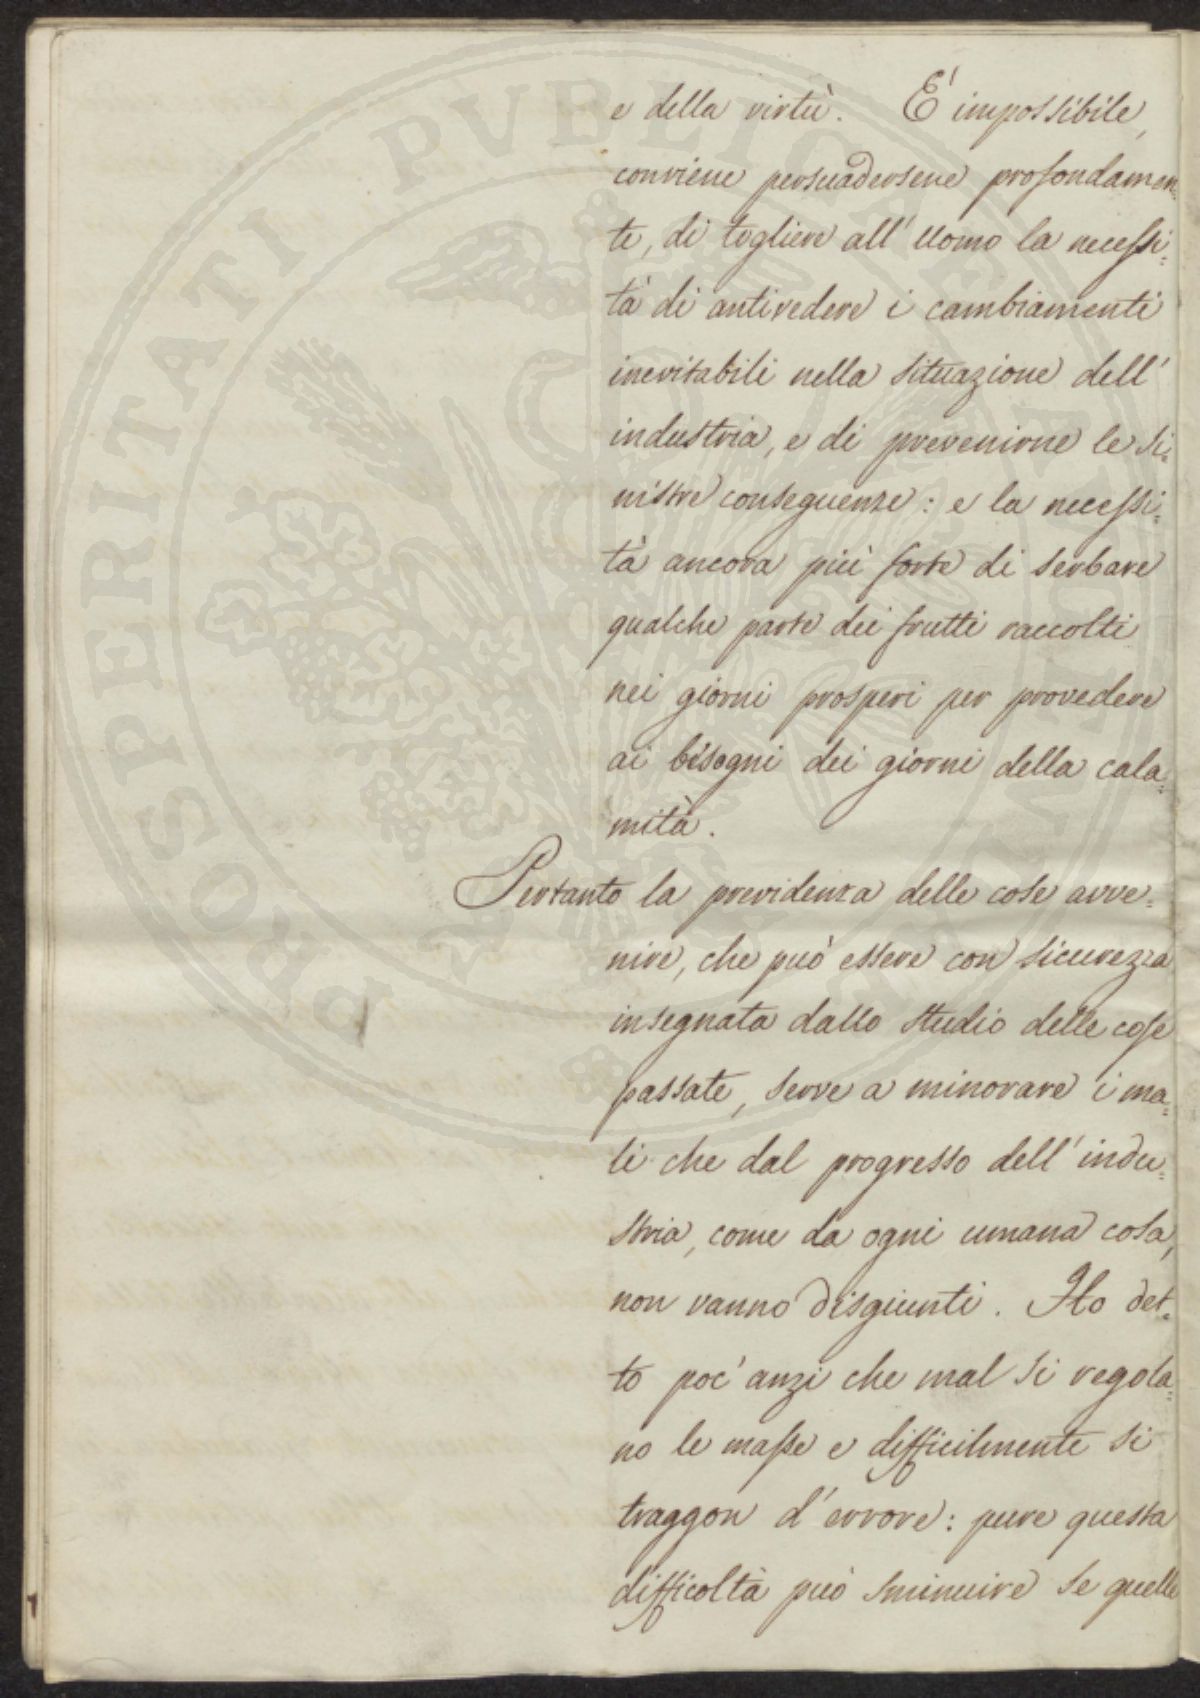 e della virtù. É impossibile,
conviene persuadersene profondamen=
te, di togliere all'uomo la necessi=
tà di antivedere i cambiamenti
inevitabili nella situazione dell'
industria, e di prevenirne le si=
nistre conseguenze: e la necessi=
tà ancora più forte di serbare
qualche parte dei frutti raccolti
nei giorni prosperi per provedere
ai bisogni dei giorni della cala=
mità.
Pertanto la previdenza delle cose avve=
nire, che può essere con sicurezza
insegnata dallo studio delle cose
passate, serve a minorare i ma=
li che dal progresso dell'indu=
stria, come da ogni umana cosa,
non vanno disgiunti. Ho det=
to poc'anzi che mal si regola=
no le masse e difficilmente si
traggon d'errore: pure questa
difficoltà può sminuire se quelle
PROSPERITATI PVBLICAE